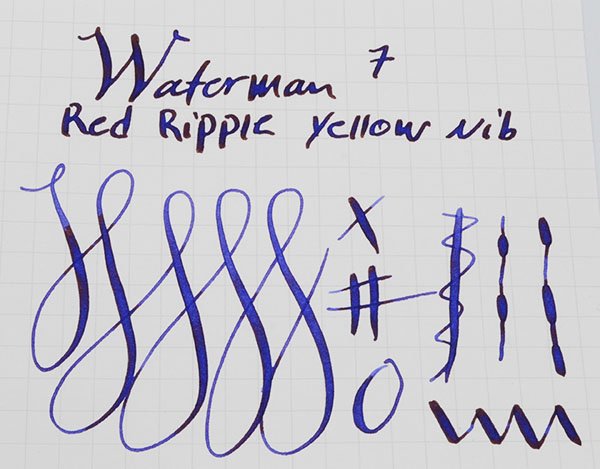 Waterman 7
Red Ripple yellow nib